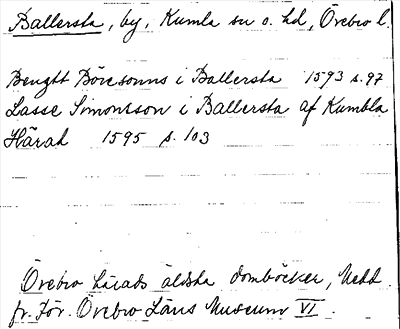 Ballersta, by, Kumla sn o. hd, Örebro l.
Bengtt Böresonns i Ballersta 1593 s. 97
Lasse Simonsson i Ballersta af Kumbla
Härad 1595 s. 103
Örebro härads äldsta domböcker, Medd.
fr. För. Örebro Läns Museum VI.